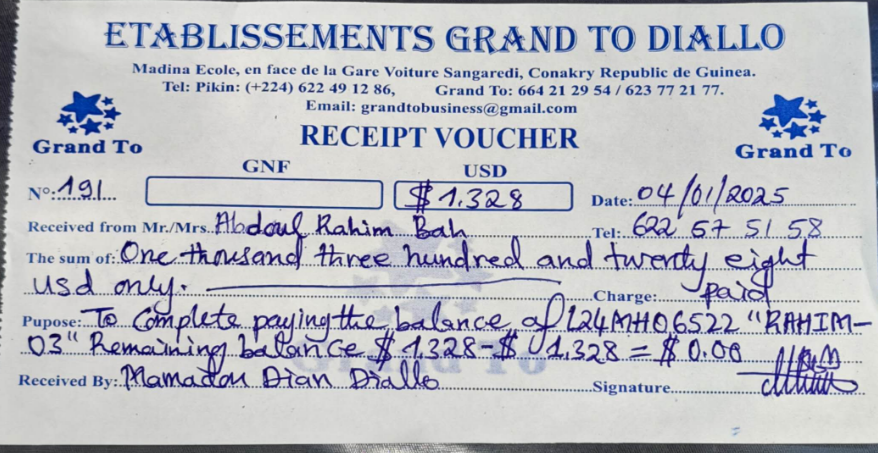 ETABLISSEMENTS GRAND TO DIALLO
Madina Ecole, en face de la Gare Voiture Sangaredi, Conakry Republic de Guinea.
Tel: Pikin: (+224) 622 49 12 86, Grand To: 664 21 29 54 / 623 77 21 77.
Email: grandtobusiness@gmail.com
Grand To RECEIPT VOUCHER Grand To
GNF USD
N°: 191 $ 1.328 Date: 04/01/2025
Received from Mr./Mrs. Abdoul Rahim Bah Tel: 622 57 51 58
The sum of: One thousand three hundred and twenty eight
usd only. Charge: paid
Pupose: To Complete paying the balance of L24MH06522 "RAHIM-
03" Remaining balance $ 1.328-$ 1.328 = $ 0.00
Received By: Mamadou Dian Diallo Signature
Grand To